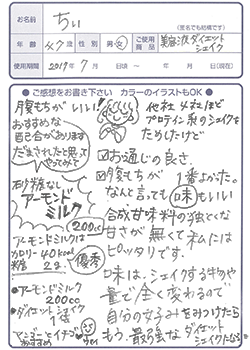 お名前 ちぃ
(匿名でも結構です)
年齢 47才 性別 男・女 ご使用商品 美容液ダイエットシェイク
使用期間 2019年7月 日頃 ~ 年 月 日頃
●ご感想をお書き下さい カラーのイラストもOK●
腹もちがいい!
おすすめな
配合があります
だまされたと思って
やってみて
砂糖なし
アーモンド
ミルク
200cc
アーモンドミルクは
カロリー40kcal
糖質 2g 優秀
●アーモンドミルク
200cc
●ダイエットシェイク
1袋
マンゴーとイチゴ
おすすめ
他社 4社ほど
プロテイン系のシェイクを
ためしたけど
☑お通じの良さ、
☑腹もちが
1番よかった。
なんと言っても味もいい
合成甘味料の強くどくな
甘さが無くて私には
ピッタリです。
味は、シェイクする物や
量で全く変わるので
自分の好みをみつけたら
もう、最強なダイエット
シェイクになる